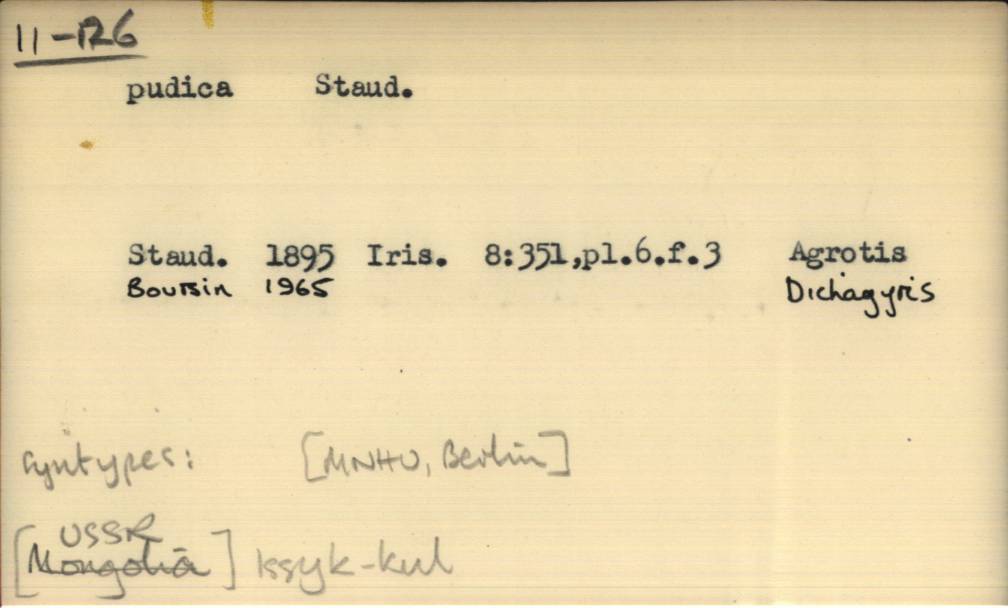 11-126
pudica Staud.
Staud. 1895 Iris. 8:351,pl.6.f.3 Agrotis
Boursin 1965 Dichagyris
Syntypes: [MNHU, Berlin]
USSR
[Mongolia] Issyk-kul